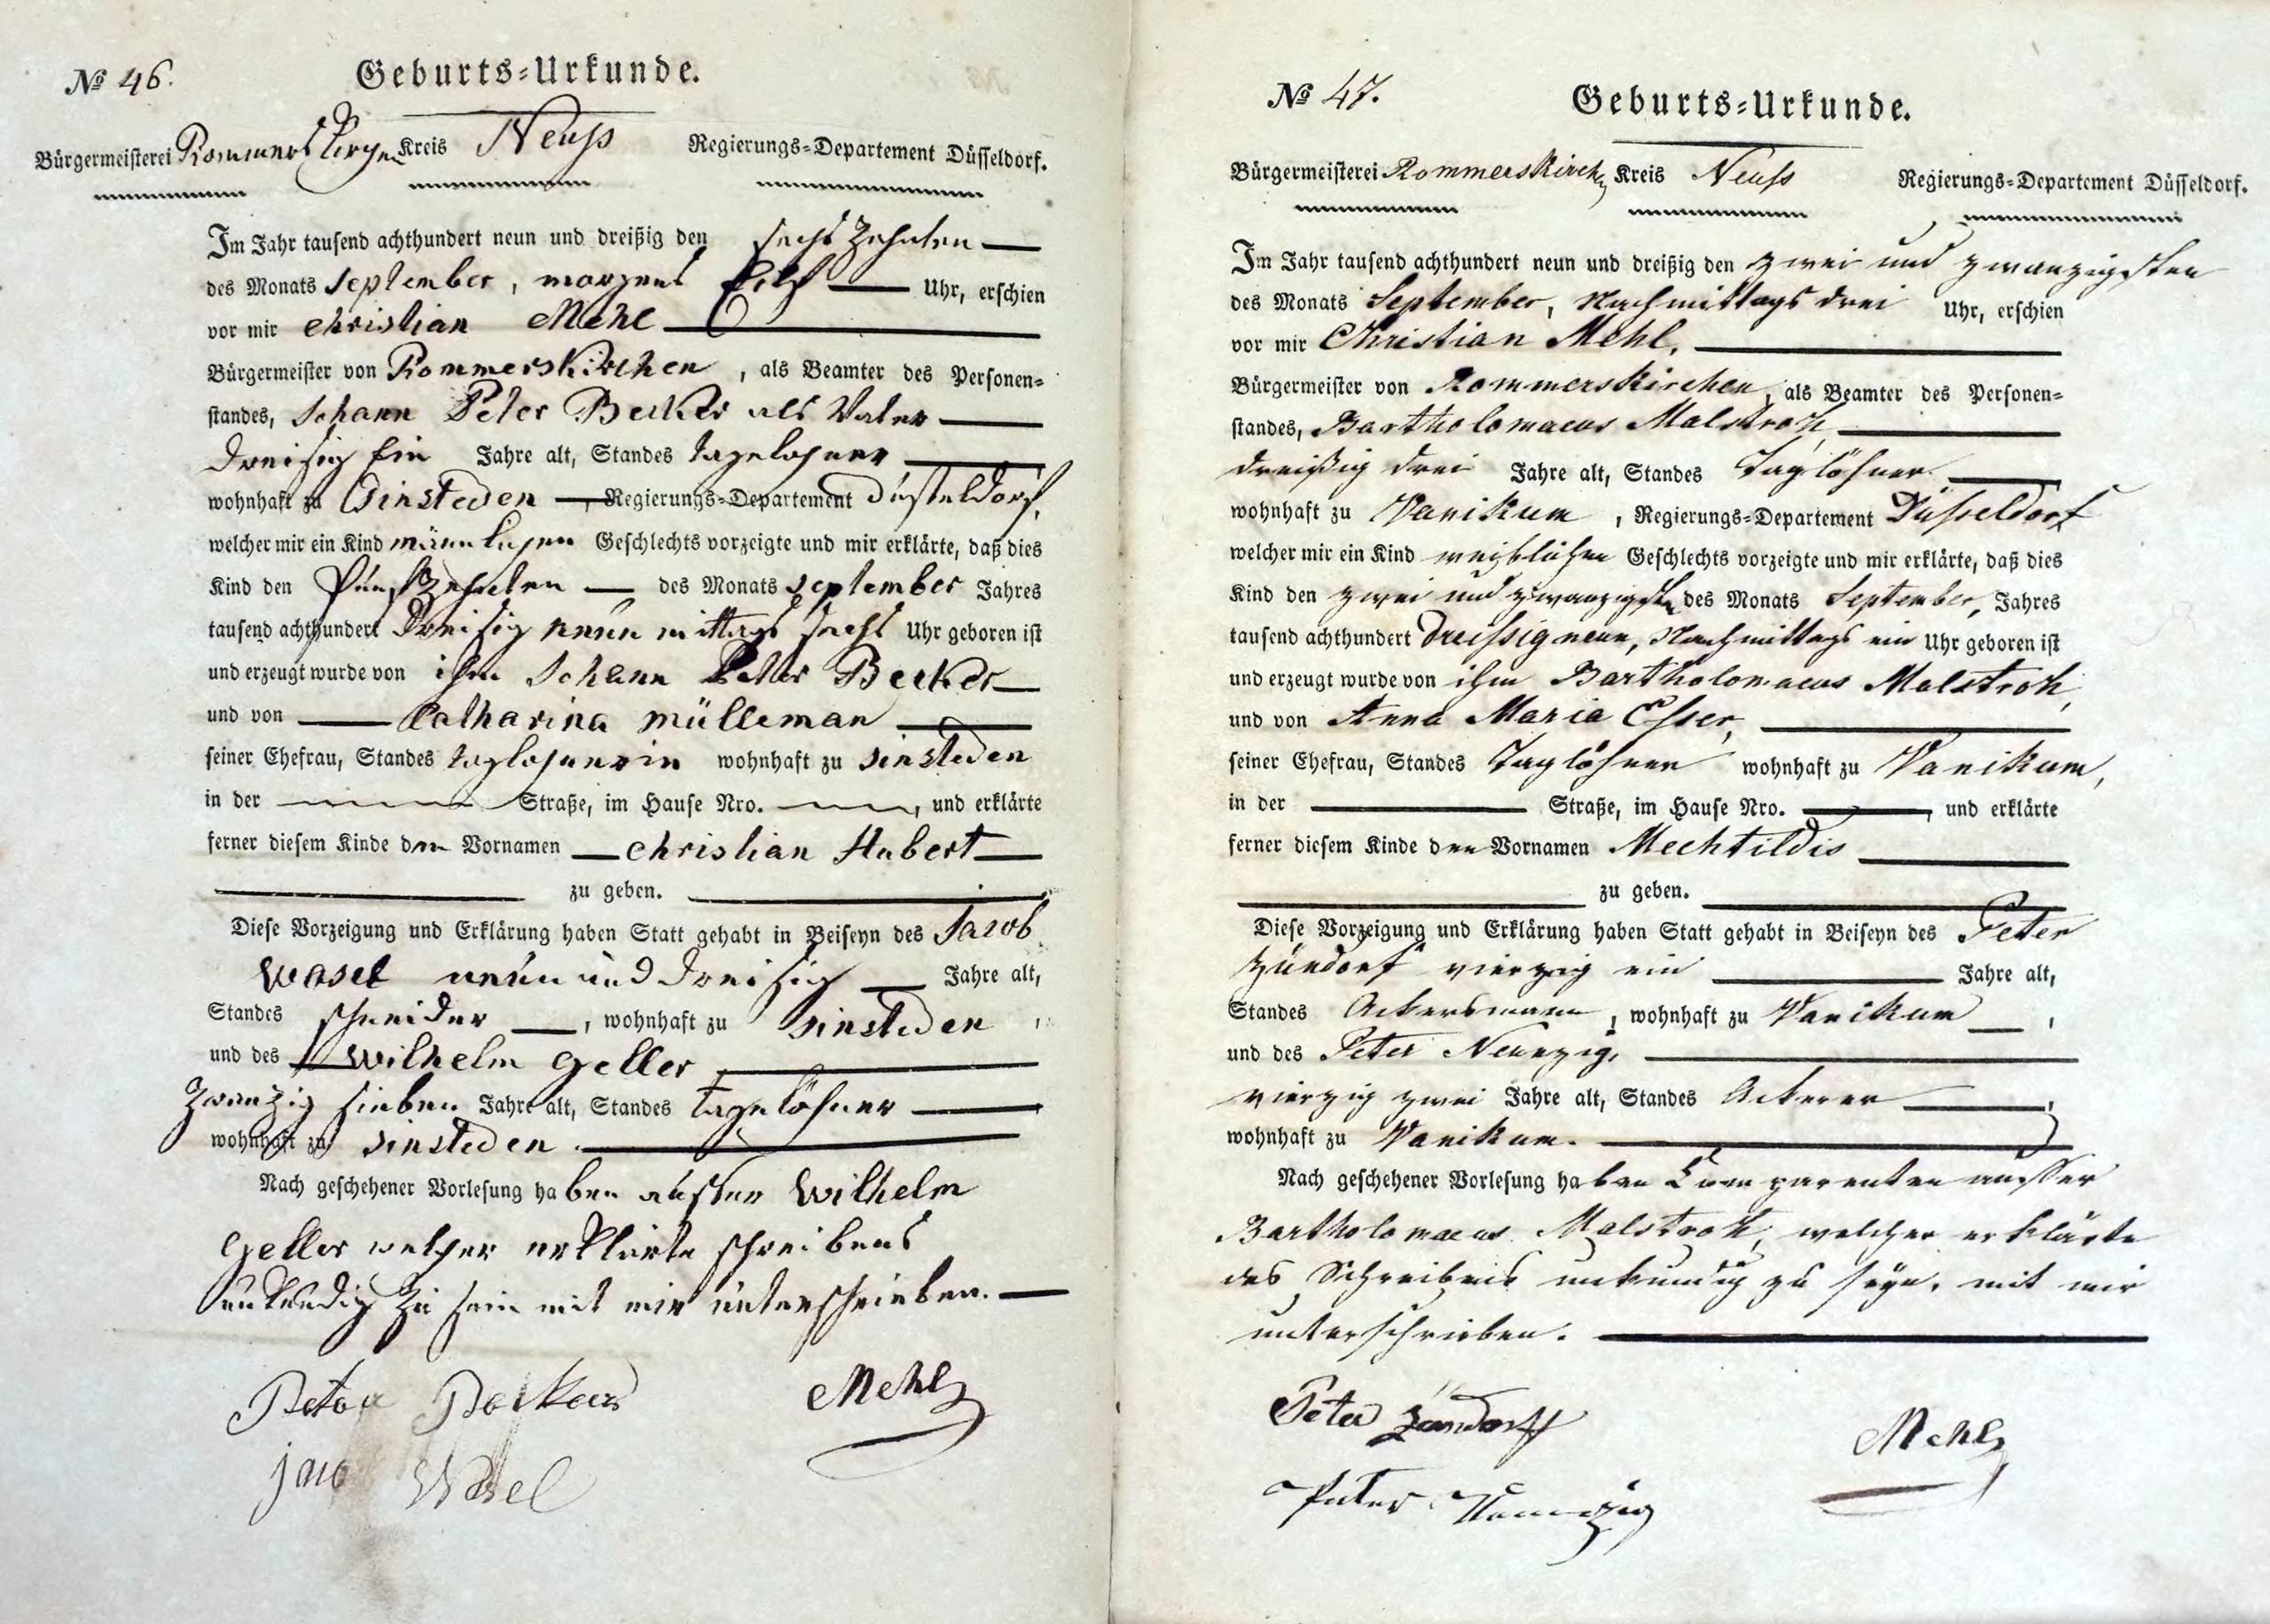 № 46.
Geburts-Urkunde.
Bürgermeisterei Rommerskirchen Kreis Neuss Regierungs-Departement Düsseldorf.
Im Jahr tausend achthundert neun und dreißig den sechszehnten
des Monats September, morgens Eilf Uhr, erschien
vor mir Christian Mehl
Bürgermeister von Rommerskirchen, als Beamter des Personen-
standes, Johann Peter Becker als Vater
dreisig Ein Jahre alt, Standes tagelohner
wohnhaft zu Sinsteden, Regierungs-Departement Düsseldorf,
welcher mir ein Kind männlichen Geschlechts vorzeigte und mir erklärte, daß dies
Kind den Fünfzehnten des Monats September Jahres
tausend achthundert dreisig neun mittags sechs Uhr geboren ist
und erzeugt wurde von ihm Johann Peter Becker
und von Catharina Mülleman
seiner Ehefrau, Standes taglohnerin wohnhaft zu Sinsteden
in der Straße, im Hause Nro. , und erklärte
ferner diesem Kinde den Vornamen Christian Hubert
zu geben.
Diese Vorzeigung und Erklärung haben Statt gehabt in Beiseyn des Jacob
Wasel neun und dreisig Jahre alt,
Standes schneider, wohnhaft zu Sinsteden,
und des Wilhelm Geller
zwanzig sieben Jahre alt, Standes tagelöhner
wohnhaft zu Sinsteden.
Nach geschehener Vorlesung haben außer Wilhelm
Geller welcher erklärte schreibens
unkundig zu sein mit mir unterschrieben.
Peter Becker Mehl
Jacob Wasel
№ 47.
Geburts-Urkunde.
Bürgermeisterei Rommerskirchen Kreis Neuss Regierungs-Departement Düsseldorf.
Im Jahr tausend achthundert neun und dreißig den zwei und zwanzigsten
des Monats September, Nachmittags drei Uhr, erschien
vor mir Christian Mehl,
Bürgermeister von Rommerskirchen, als Beamter des Personen-
standes, Bartholomaeus Malstroh,
dreißig drei Jahre alt, Standes Taglöhner
wohnhaft zu Vanikum, Regierungs-Departement Düsseldorf
welcher mir ein Kind weiblichen Geschlechts vorzeigte und mir erklärte, daß dies
Kind den zwei und zwanzigsten des Monats September, Jahres
tausend achthundert dreissig neun, Nachmittags ein Uhr geboren ist
und erzeugt wurde von ihm Bartholomaeus Malstroh,
und von Anna Maria Esser,
seiner Ehefrau, Standes Taglöhner wohnhaft zu Vanikum,
in der Straße, im Hause Nro. , und erklärte
ferner diesem Kinde den Vornamen Mechtildis
zu geben.
Diese Vorzeigung und Erklärung haben Statt gehabt in Beiseyn des Peter
Zündorf vierzig ein Jahre alt,
Standes Ackersmann, wohnhaft zu Vanikum,
und des Peter Neunzig,
vierzig zwei Jahre alt, Standes Ackerer,
wohnhaft zu Vanikum.
Nach geschehener Vorlesung haben Comparenten ausser
Bartholomaeus Malstroh, welcher erklärte
des Schreibens unkundig zu seyn, mit mir
unterschrieben.
Peter Zündorff Mehl
Peter Neunzig